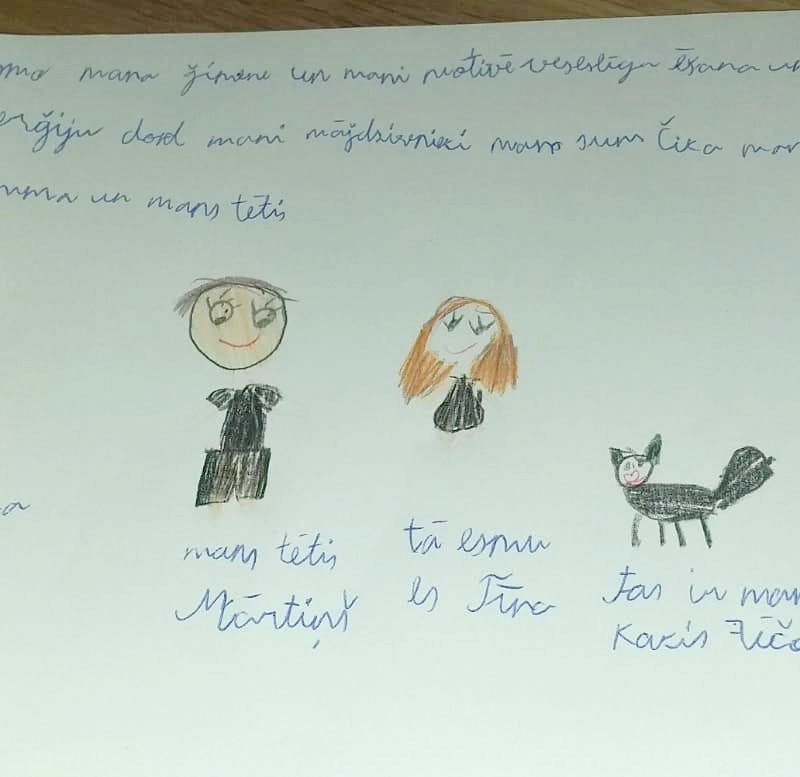 mana ģimene un mani motivē veselīga ēšana un
erģiju dod mani mājdzīvnieki mans suns Čika man
mma un mans tētis
a
mans tētis
Mārtiņš
tā esmu
es Tīna
tas ir man
Kaķis